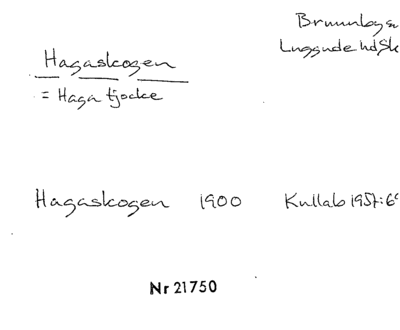 Brunnby sn
Luggude hd Sk
Hagaskogen
= Haga tjocke
Hagaskogen 1900 Kullab 1957:69
Nr 21750